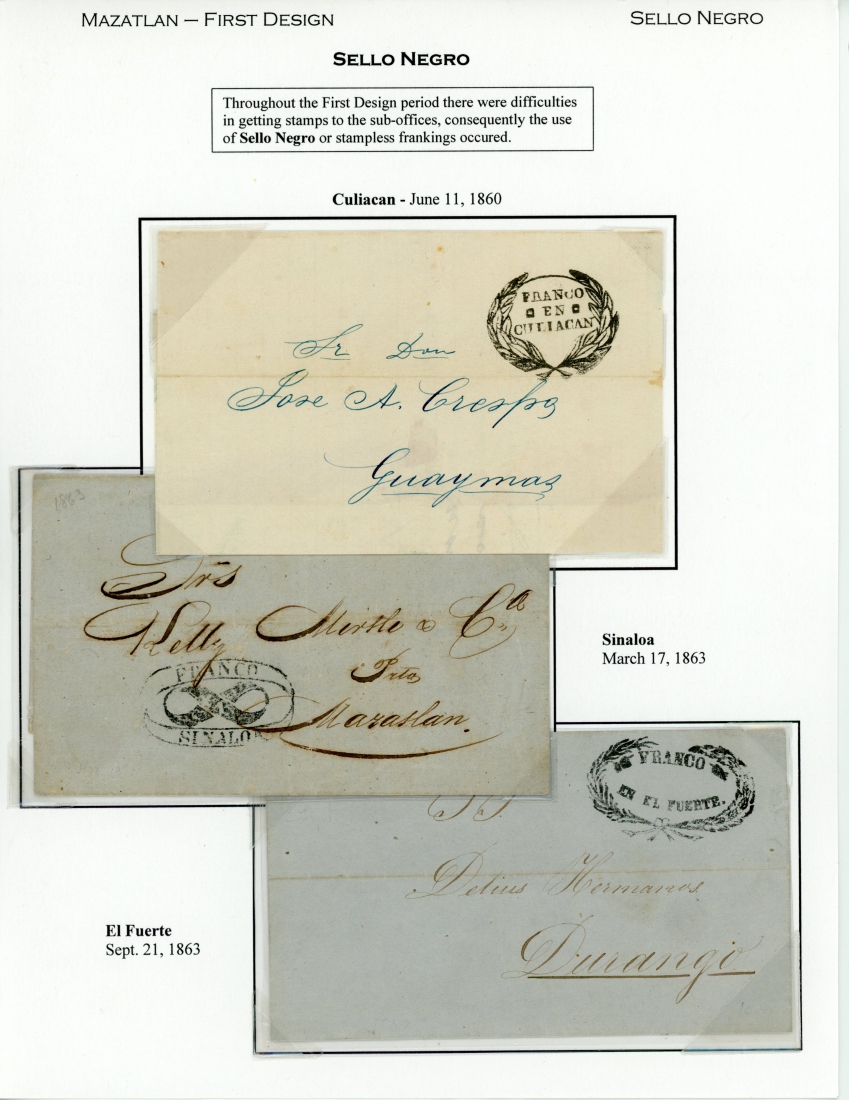 MAZATLAN – FIRST DESIGN
SELLO NEGRO
SELLO NEGRO
Throughout the First Design period there were difficulties
in getting stamps to the sub-offices, consequently the use
of Sello Negro or stampless frankings occured.
Culiacan - June 11, 1860
FRANCO
EN
CULIACAN
Sr Don
Jose A. Crespo
Guaymas
1863
Srs
Kelly Mirtle & Ca
Pto
Mazatlan.
FRANCO
SINALOA
Sinaloa
March 17, 1863
FRANCO
EN EL FUERTE.
Delius Hermanos
Durango
El Fuerte
Sept. 21, 1863